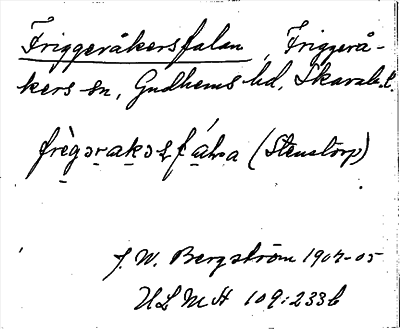 Friggeråkersfalan, Friggerå-
kers sn, Gudhems hd, Skarab. l.
frìgərakəsfála (Stenstorp)
J. W. Bergström 1904-05
ULMA 109:233b